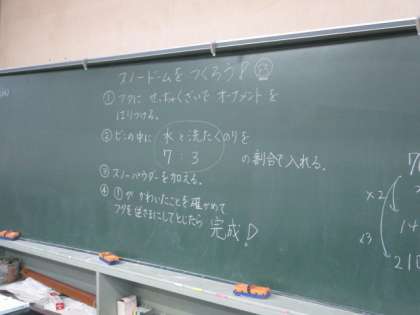 スノードームをつくろう!
① フタに せっちゃくざいで オーナメントを
はりつける。
② ビンの中に 水と洗たくのりを
7:3 の割合で入れる。
③ スノーパウダーを加える。
④ ①が かわいたことを確かめて
フタを逆さまにしてとじたら 完成!
7
×2
14
×3
210